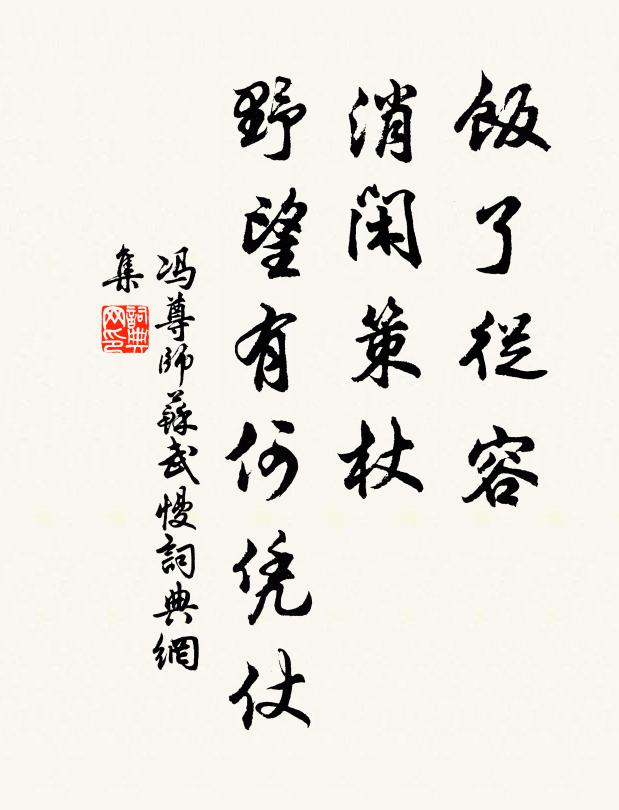 飯了從容
消閑策杖
野望有何凭仗
冯尊師蘇武慢詞典網
集
詞典
网印